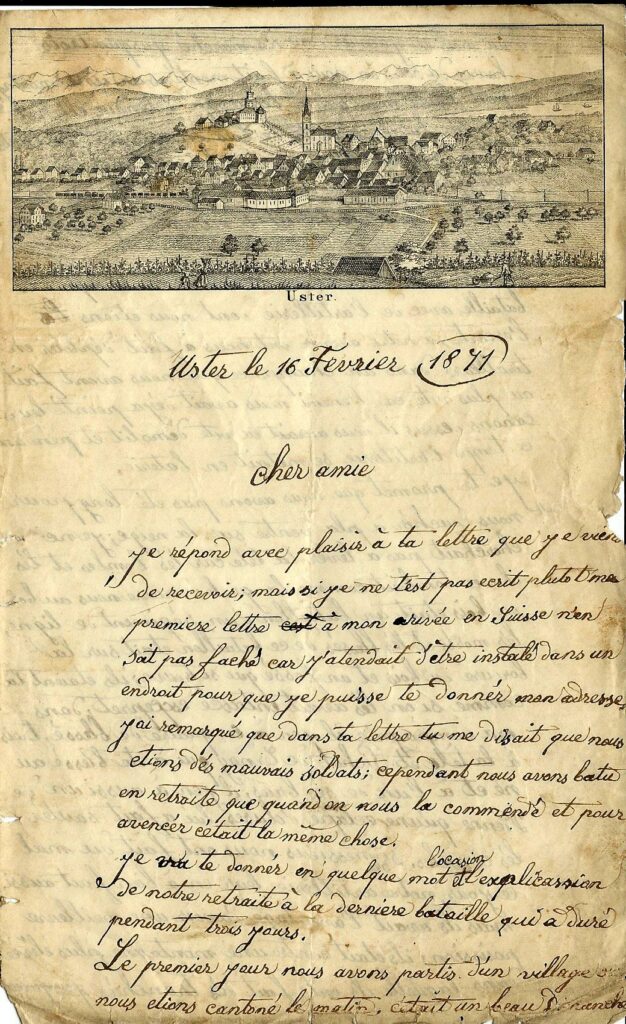 Uster.
Uster le 16 Fevrier 1871
cher amie
je répond avec plaisir à ta lettre que je viens
de recevoir; mais si je ne t'est pas ecrit plutot ma
premiere lettre à mon arivée en Suisse n'en
soit pas faché car j'atendait d'être instalé dans un
endroit pour que je puisse te donnér mon adresse,
j'ai remarqué que dans ta lettre tu me disait que nous
etions dés mauvais soldats; cependant nous avons batu
en retraite que quand on nous la commendé et pour
avencér c'était la même chose.
je te donnér en quelque mot l'ocasion
l'explicassion
de notre retraite à la derniere bataille qui à duré
pendant trois jours.
Le premier jour nous avons partis d'un village
nous etions cantoné le matin. c'était un beau Dimanche